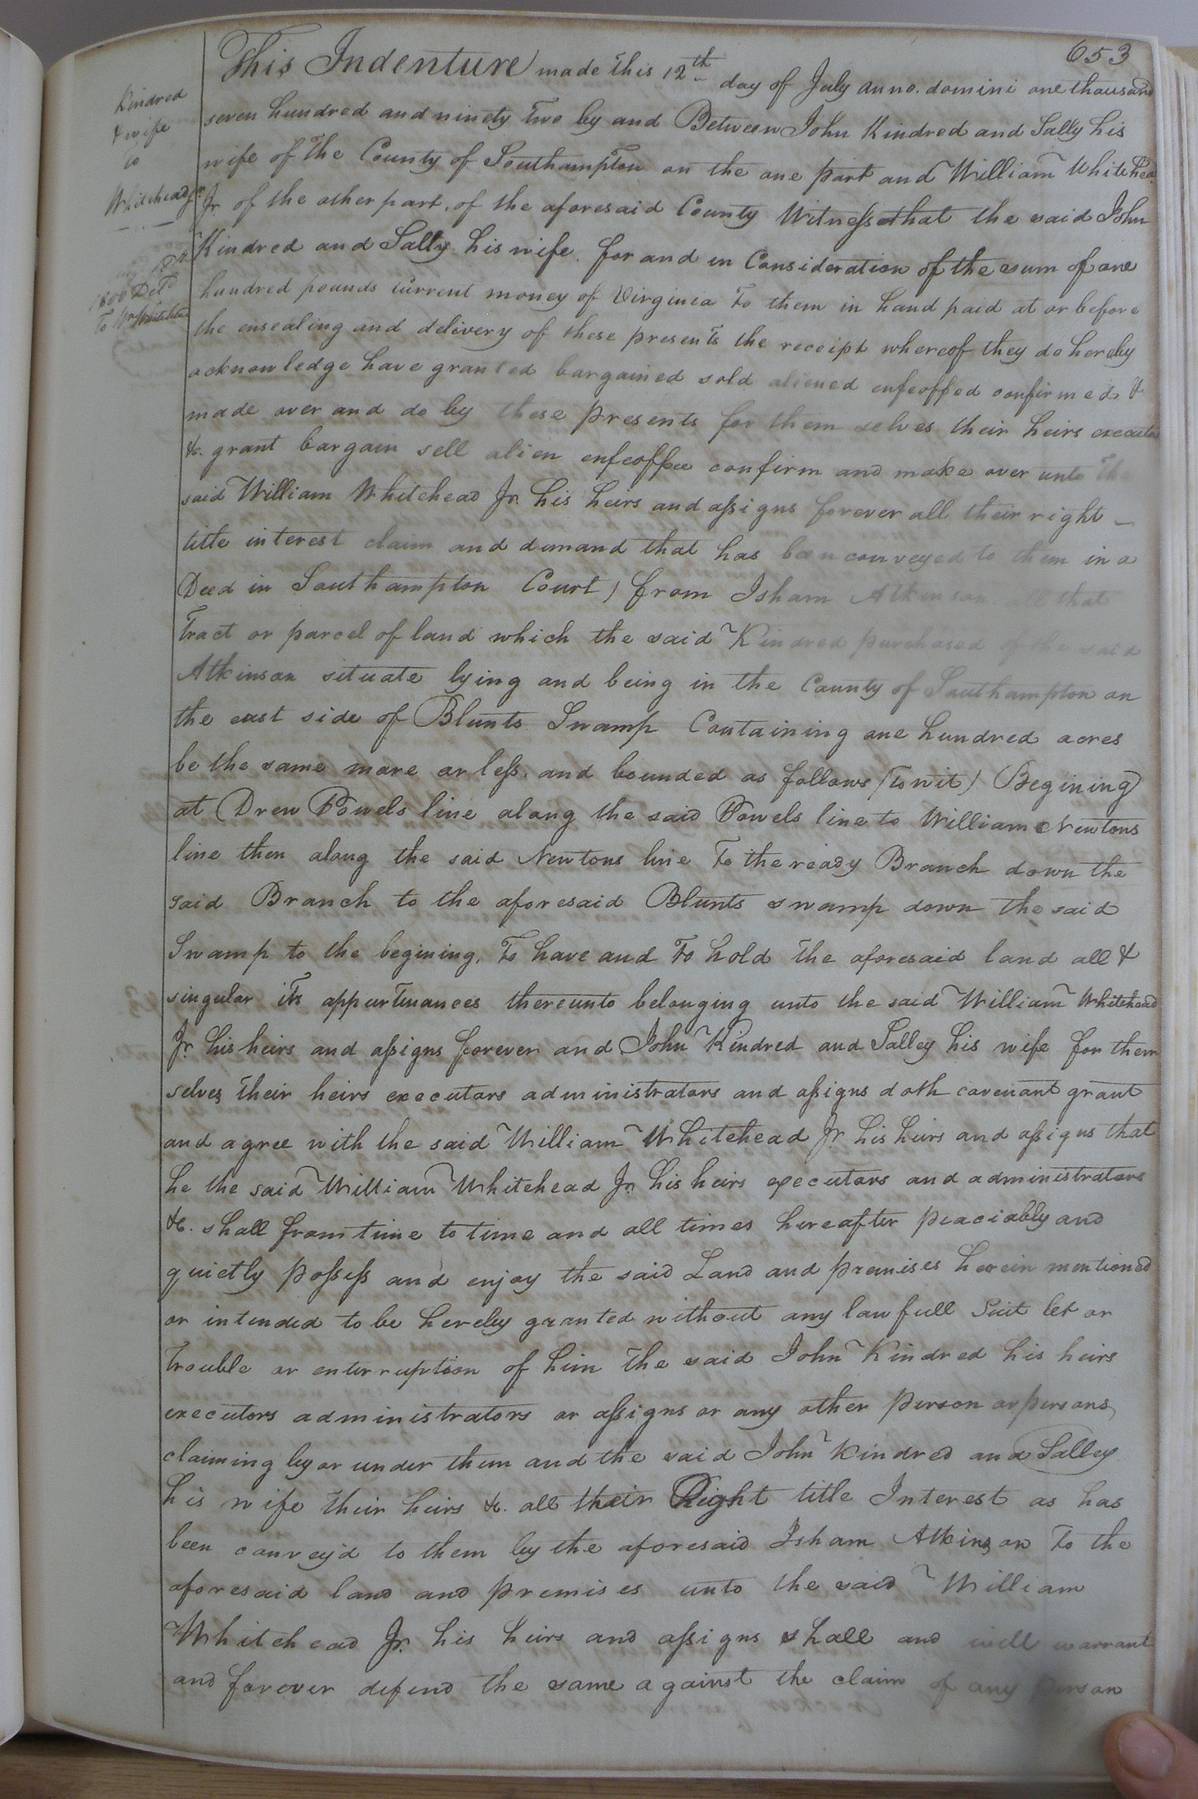 653
Kindred
& wife
to
Whitehead Jr
Deld
To Wm Whitehead
This Indenture made this 12th day of July anno. domini one thousand
seven hundred and ninety Two by and Between John Kindred and Sally his
wife of the County of Southampton on the one part and William Whitehead
Jr of the other part, of the aforesaid County Witnesseth that the said John
Kindred and Sally his wife. for and in Consideration of the sum of one
hundred pounds current money of Virginia To them in hand paid at or before
the ensealing and delivery of these presents the receipt whereof they do hereby
acknowledge have granted bargained sold aliened enfeoffed confirmed &
made over and do by these presents for them selves their heirs executors
&c. grant bargain sell alien enfeoffee confirm and make over unto the
said William Whitehead Jr. his heirs and assigns forever all their right
title interest claim and demand that has been conveyed to them in a
Deed in Southampton Court) from Isham Atkinson all that
Tract or parcel of land which the said Kindred purchased of the said
Atkinson situate lying and being in the County of Southampton on
the east side of Blunts Swamp Containing one hundred acres
be the same more or less, and bounded as follows (To wit) Begining
at Drew Powels line along the said Powels line to William Newtons
line then along the said Newtons line To the ready Branch down the
said Branch to the aforesaid Blunts swamp down the said
Swamp to the begining, To have and To hold the aforesaid land all &
singular its appurtinances thereunto belonging unto the said William Whitehead
Jr. his heirs and assigns forever and John Kindred and Salley his wife for them
selves their heirs executors administrators and assigns doth covenant grant
and agree with the said William Whitehead Jr his heirs and assigns that
he the said William Whitehead Jr. his heirs executors and administrators
&c. shall from time to time and all times hereafter peaciably and
quietly possess and enjoy the said Land and premises herein mentioned
or intended to be hereby granted without any lawfull Suit let or
trouble or enterruption of him the said John Kindred his heirs
executors administrators or assigns or any other person or persons,
claiming by or under them and the said John Kindred and Salley
his wife their heirs &c. all their Right title Interest as has
been convey'd to them by the aforesaid Isham Atkinson To the
aforesaid land and premises unto the said William
Whitehead Jr. his heirs and assigns shall and will warrant
and forever defend the same against the claim of any person